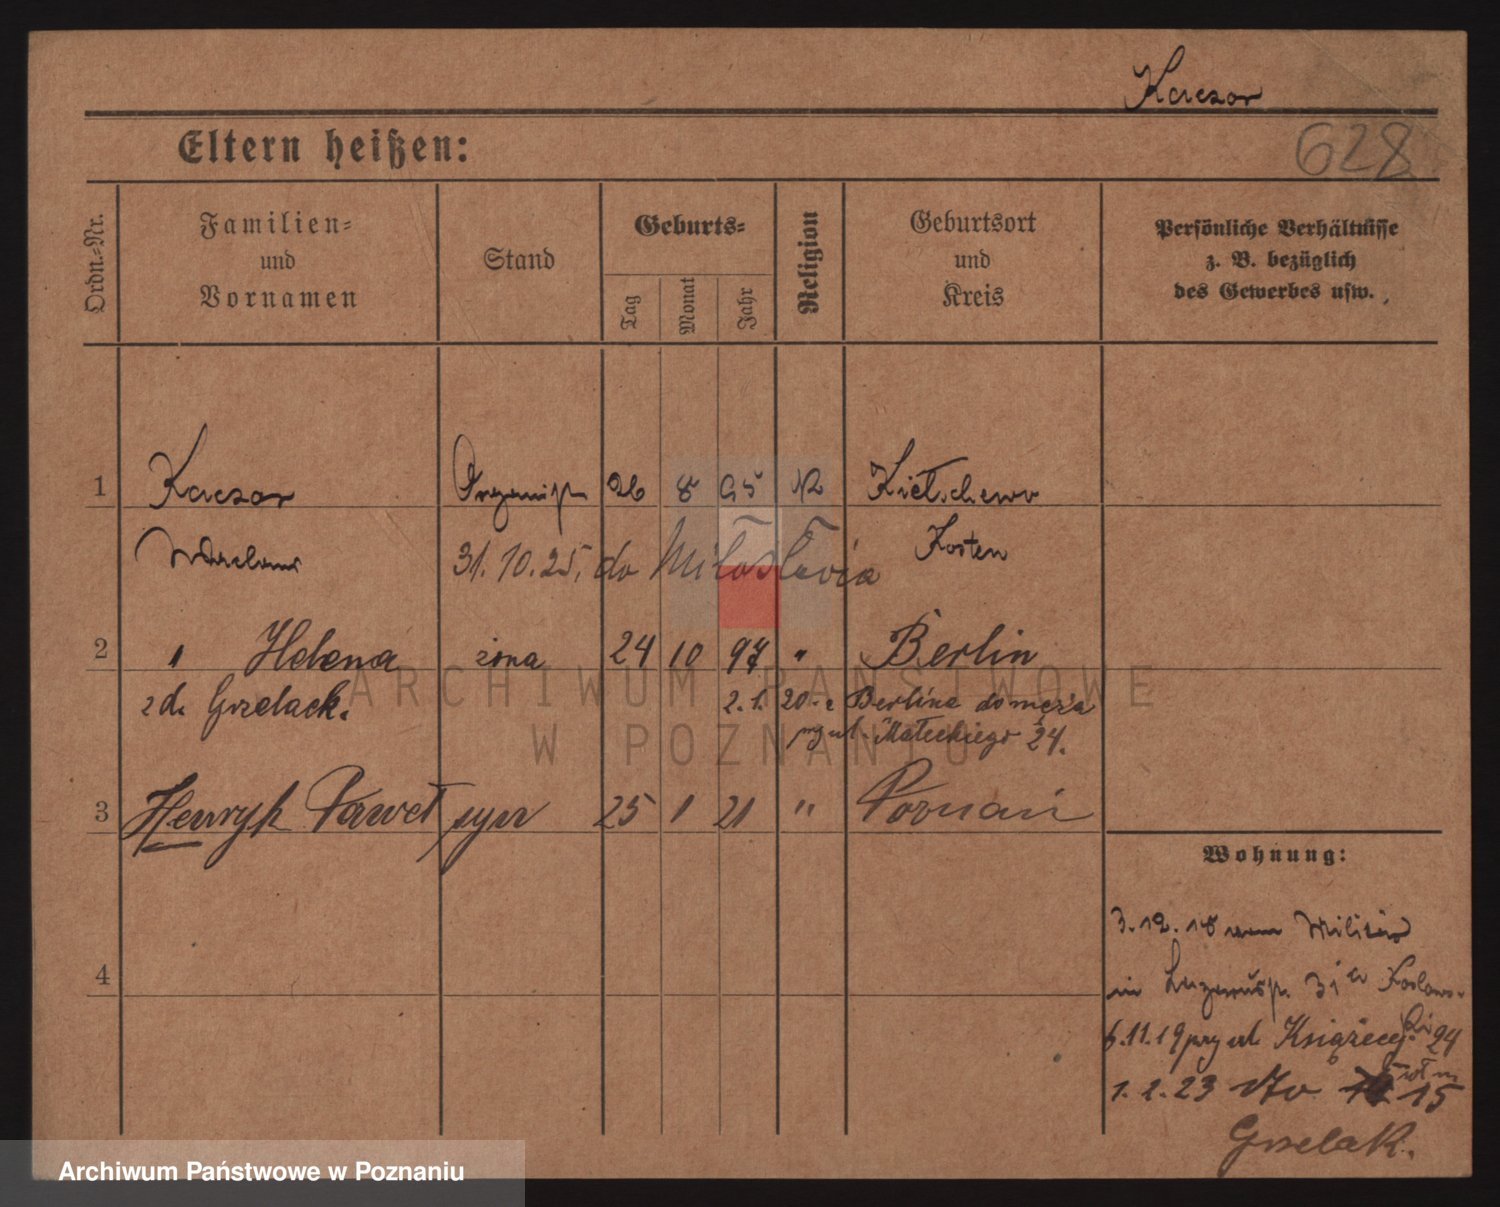 Kaczor
Eltern heißen:
628
Ordn.-Nr.
Familien-
und
Vornamen
Stand
Geburts-
Tag
Monat
Jahr
Religion
Geburtsort
und
Kreis
Persönliche Verhältnisse
z. B. bezüglich
des Gewerbes usw.
1 Kaczor Organist 26 8 95 Kietschewo
31. 10. 25, do Miłosławia Kosten
2 " Helena żona 24 10 97 " Berlin
z d. Grzelack. 2. 1. 20. z Berlina do męża
przy ul. Małeckiego 24.
3 Henryk Paweł syn 25 1 21 " Poznań
Wohnung:
4
3. 12. 18 vom Militär
in 31
6. 11. 19 przy ul. Książęcej 24
1. 2. 23 15
Grzelak.
ARCHIWUM PAŃSTWOWE
W POZNANIU
Archiwum Państwowe w Poznaniu